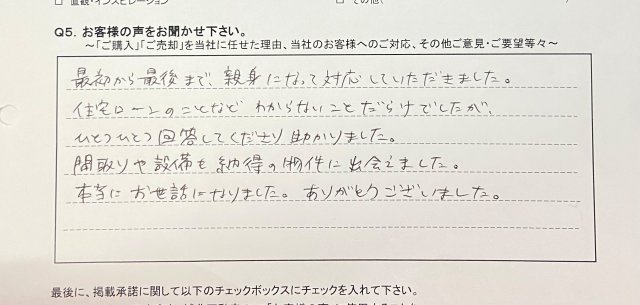 □ 直観・インスピレーション
□ その他(
Q5. お客様の声をお聞かせ下さい。
～「ご購入」「ご売却」を当社に任せた理由、当社のお客様へのご対応、その他ご意見・ご要望等々～
最初から最後まで、親身になって対応していただきました。
住宅ローンのことなど わからないことだらけでしたが、
ひとつひとつ回答してくださり助かりました。
間取りや設備も納得の物件に出会えました。
本当にお世話になりました。ありがとうございました。
最後に、掲載承諾に関して以下のチェックボックスにチェックを入れて下さい。